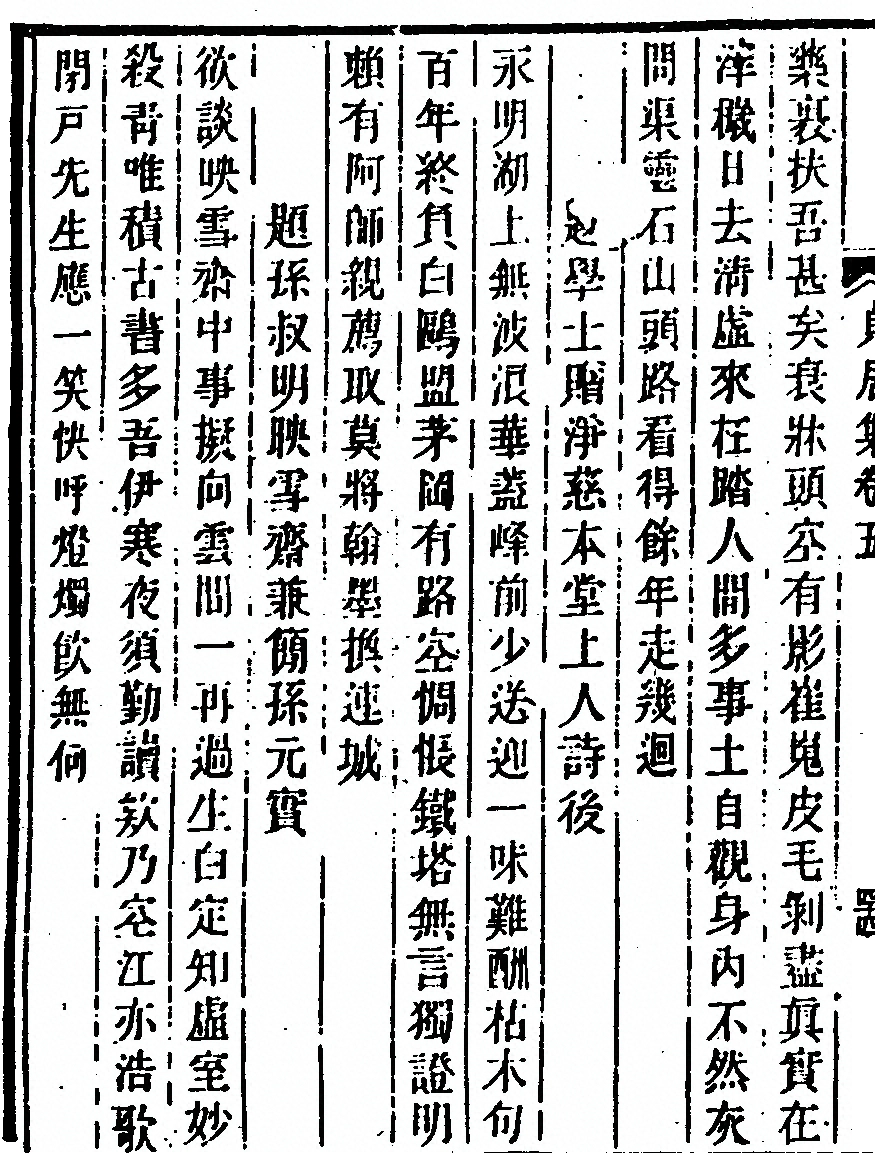 藥裹扶吾甚矣衰牀頭空有影崔嵬皮毛剝盡眞實在
滓穢日去淸虛來枉踏人間多事土自觀身內不然灰
問渠靈石山頭路看得餘年走幾迴
趙學士贈淨慈本堂上人詩後
永明湖上無波浪華蓋峰前少送迎一味難酬枯木句
百年終負白鷗盟茅岡有路空惆悵鐵塔無言獨證明
賴有阿師親薦取莫將翰墨換連城
題孫叔明映雪齋兼簡孫元實
欲談映雪齋中事擬向雲間一再過生白定知虛室妙
殺靑唯積古書多吾伊寒夜須勤讀欸乃空江亦浩歌
閉戸先生應一笑快呼燈燭飮無何
貞居集卷五